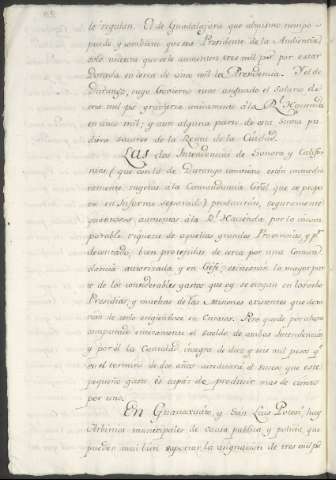 le regulan. El de Guadalajara que al mismo tiempo
puede y conviene que sea Presidente de la Audiencia
solo necesita que se le aumenten tres mil por estar
Dotada en cerca de cinco mil la Presidencia. Y el de
Durango, cuyo Govierno tiene asignado el salario de
tres mil p.s gravaría unicamente á la R.l Hacienda
en cinco mil, y aun alguna parte de esa Suma pu
diera sacarse de la Renta de la Ciudad.
Las dos Intendencias de Sonora y Califor
nias (que con la de Durango convienen estén inmedia
tamente sugetas á la Comandancia Gral. que se propo
ne en Informe separado) producirán, seguramente
quantiosos aumentos á la R.l Hacienda por la incom
parable riqueza de aquellas grandes Provincias, y p.r
de contado, bien protegidas de cerca por una Coman
dancia autorizada, y en Gefe, escusarán la mayor par
te de los considerables gastos que oy se erogan en los ocho
Presidios, y muchas de las Misiones existentes que deve
rán de serlo erigiendose en Curatos. Pero quede por ahora
compensado enteramente el sueldo de ambos Intendencias
y por él la Cantidad integra de diez y seis mil pesos q.e
en el termino de dos años acreditará el suceso que este
pequeño gasto es capáz de producir mas de ciento
por uno.
En Guanaxuato, y San Luis Potosí, hay
Arbitrios municipales de causa publica y policia que
pueden mui bien soportar la asignacion de tres mil p.s